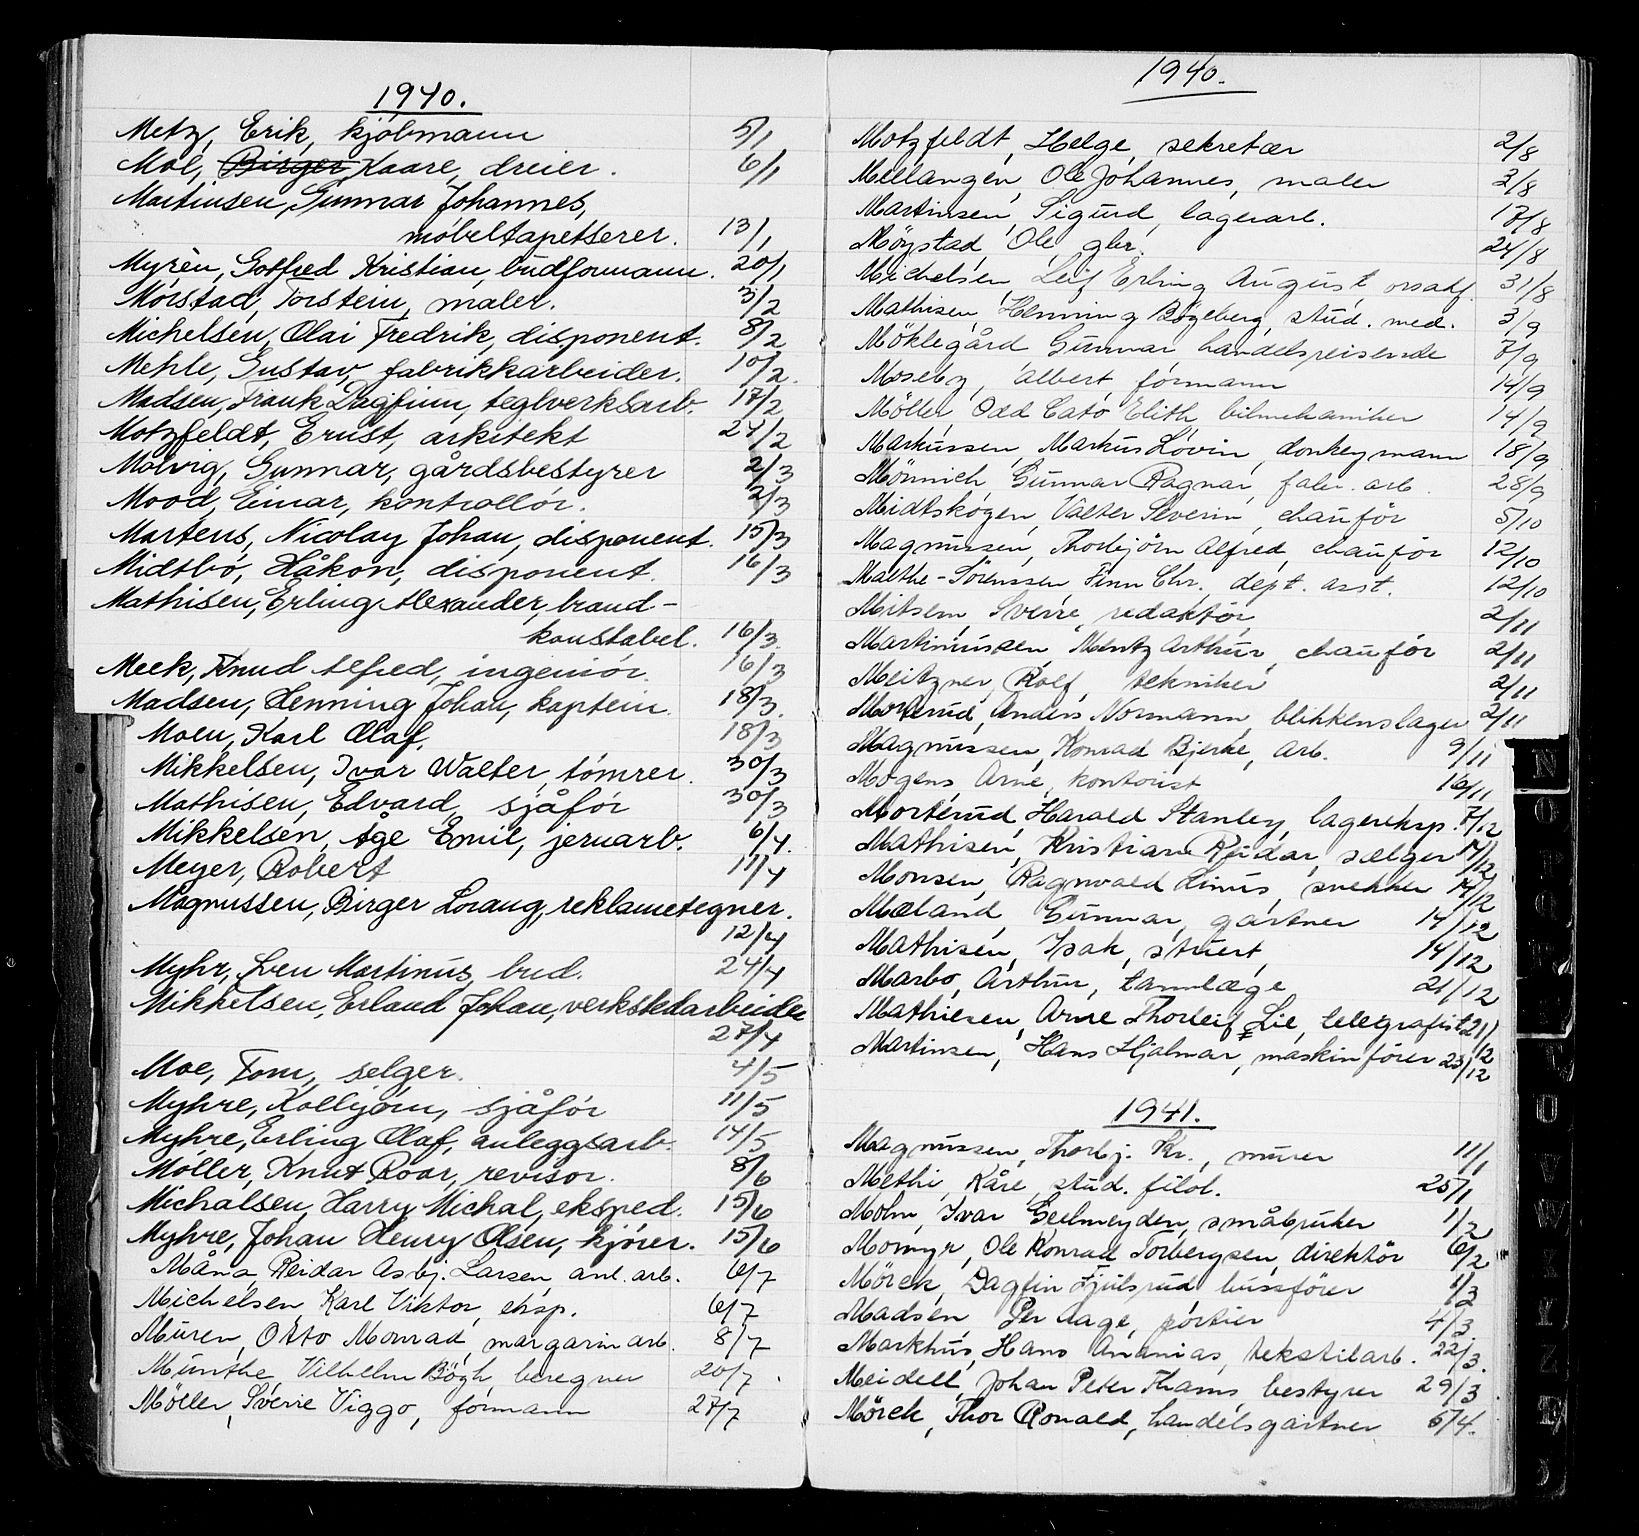 1940.
Metz, Erik, kjøbmann 5/1
Mol, Birger Kaare, dreier. 6/1
Martinsen, Gunnar Johannes,
møbeltapetserer. 13/1
Myrèn, Gotfred Kristian, budformann. 20/1
Mørstad, Torstein, maler. 3/2
Michelsen, Olai Fredrik, disponent. 8/2
Mehle, Gustav, fabrikkarbeider. 10/2.
Madsen, Frank Dagfinn, teglverksarb. 17/2
Motzfeldt, Ernst, arkitekt 24/2
Molvig, Gunnar, gårdsbestyrer 2/3
Mood, Einar, kontrollør. 2/3
Martens, Nicolay Johan, disponent. 15/3
Midtbø, Håkon, disponent. 16/3
Mathisen, Erling Alexander, brand-
konstabel. 16/3.
Meek, Knud Alfred, ingeniør. 16/3
Madsen, Henning Johan, kaptein. 18/3.
Moen, Karl Olaf. 18/3
Mikkelsen, Ivar Walter, tømrer. 30/3
Mathisen, Edvard, sjåfør 30/3
Mikkelsen, Åge Emil, jernarb. 6/4.
Meyer, Robert 11/4
Magnussen, Birger Lorang, reklametegner.
12/4
Myhr, Sven Martinus, bud. 24/4
Mikkelsen, Erland Johan, verkstedarbeider
27/4
Moe, Tom, selger. 4/5
Myhre, Kolbjørn, sjåfør 11/5
Myhre, Erling Olaf, anleggsarb. 14/5
Møller, Knut Roar, revisor. 8/6
Michalsen, Harry Michal, eksped. 15/6
Myhre, Johan Henry Olsen, kjører. 15/6
Måna, Reidar Asbj. Larsen, anl. arb. 6/7
Michelsen Karl Viktor, eksp. 6/7
Muren, Otto Monrad, margarin arb. 8/7
Munthe, Vilhelm Bögh, beregner 20/7.
Möller, Sverre Viggo, formann 27/7
1940.
Motzfeldt, Helge, sekretær 2/8
Mellangen, Ole Johannes, maler 3/8
Martinsen, Sigurd, lagerarb. 17/8
Møystad, Ole, gbr. 24/8
Michelsen, Leif Erling August, 31/8
Mathisen, Henning Bøgeberg, stud. med. 3/9
Möklegård Gunnar handelsreisende 7/9
Moseby, Albert, formann 14/9
Möller, Odd Cato Elith, bilmekaniker 14/9
Markussen, Markus Lovin, donkeymann 18/9
Mönnich Gunnar Ragnar, fabr. arb. 28/9
Midtskogen, Valter Severin, chauför 5/10
Magnussen, Thorbjörn Alfred, chauför 12/10
Malthe-Sörenssen, Finn Chr., dept. asst. 12/10
Mitsem, Sverre, redaktör, 2/11
Martinussen, Mentz Arthur, chauför 2/11
Meitzner, Rolf, tekniker 2/11
Morterud, Anders Normann, blikkenslager 2/11
Magnussen, Konrad Bjerke, arb. 9/11
Mogens, Arne, kontorist 16/11
Morterud, Harald Stanley, lagereksp. 7/12
Mathisen, Kristian Reidar, sælger 14/12
Monsen, Ragnvald Linus, snekker 14/12
Mæland, Gunnar, gartner 14/12
Mathisen, Isak, stuert, 14/12
Marbo, Arthur, tannlæge 21/12
Mathiesen, Arne Thorleif Lie, telegrafist 21/12
Martinsen, Hans Hjalmar, maskinfører 23/12
1941.
Magnussen, Thorbj. Kr., murer 11/1
Methi, Kåre, stud. filol. 25/1
Molm, Ivar Geelmeyden, småbruker 1/2
Momyr, Ole Konrad Torbergsen, direktör 6/2
Mörck, Dagfin Fjulsrud bussförer 1/3
Madsen, Per Aage, portier 4/3.
Markhus, Hans Ananias, tekstilarb. 22/3.
Meidell, Johan Peter Thams, bestyrer 29/3
Mörck, Thor Ronald, handelsgartner 5/4.
N
O
P
Q
R
S
T
U
V
W
X
Y
Z